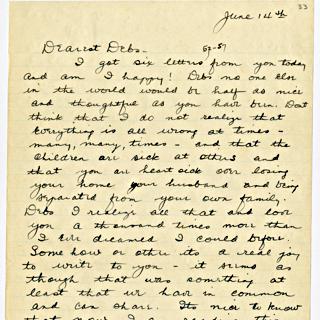 33
June 14th
Dearest Debs - 63-57
I got six letters from you today
and am I happy! Debs no one else
in the world would be half as nice
and thoughtful as you have been. Dont
think that I do not realize that
everything is all wrong at times -
many, many, times - and that the
children are sick at others and
that you are heart sick over losing
your home your husband and being
separated from your own family.
Debs I realize all that and love
you a thousand times more than
I ever dreamed I could before.
Some how or other its a real joy
to write to you - it seems as
though that was something at
least that we have in common
and can share. Its nice to know